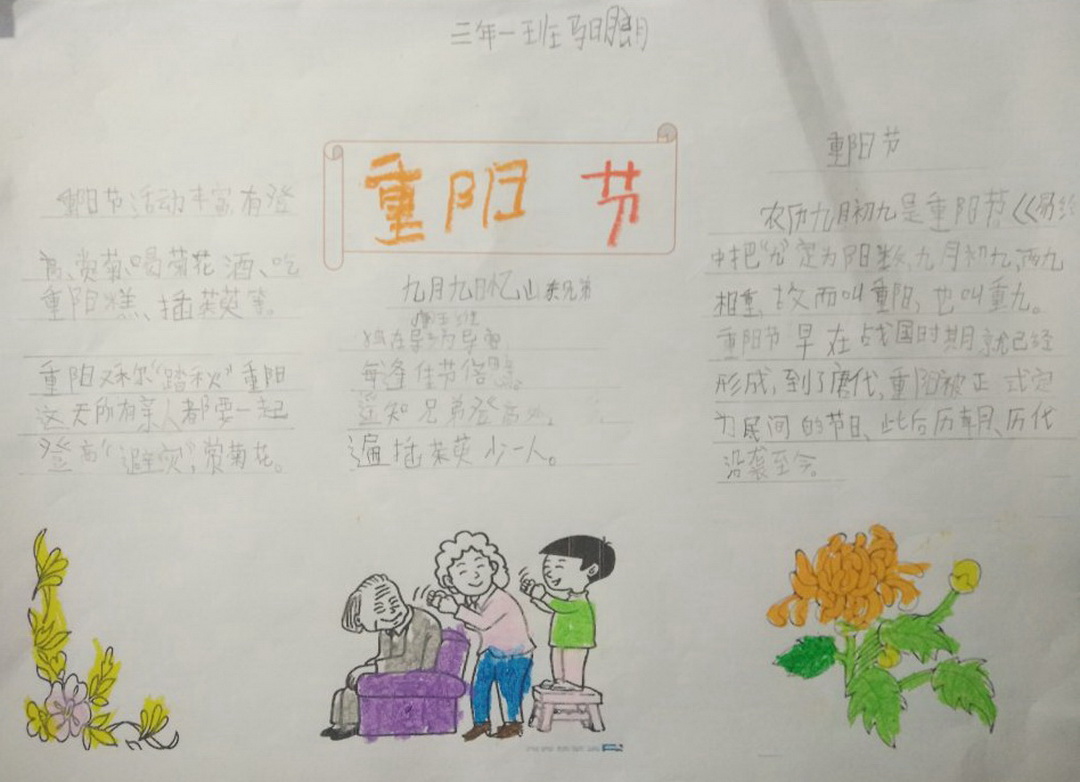 三年一班
重阳节
重阳节活动丰富有登
高、赏菊、喝菊花酒、吃
重阳糕、插茱萸等。
重阳又称“踏秋”重阳
这天所有亲人都要一起
登高“避灾”，赏菊花。
九月九日忆山东兄弟
独在异为异
每逢佳节倍思
遥知兄弟登高处，
遍插茱萸少一人。
重阳节
农历九月初九是重阳节《易经
中把“九”定为阳数，九月初九，两九
相重，故而叫重阳，也叫重九。
重阳节早在战国时期就已经
形成，到了唐代，重阳被正式定
为民间的节日，此后历朝、历代
沿袭至今。